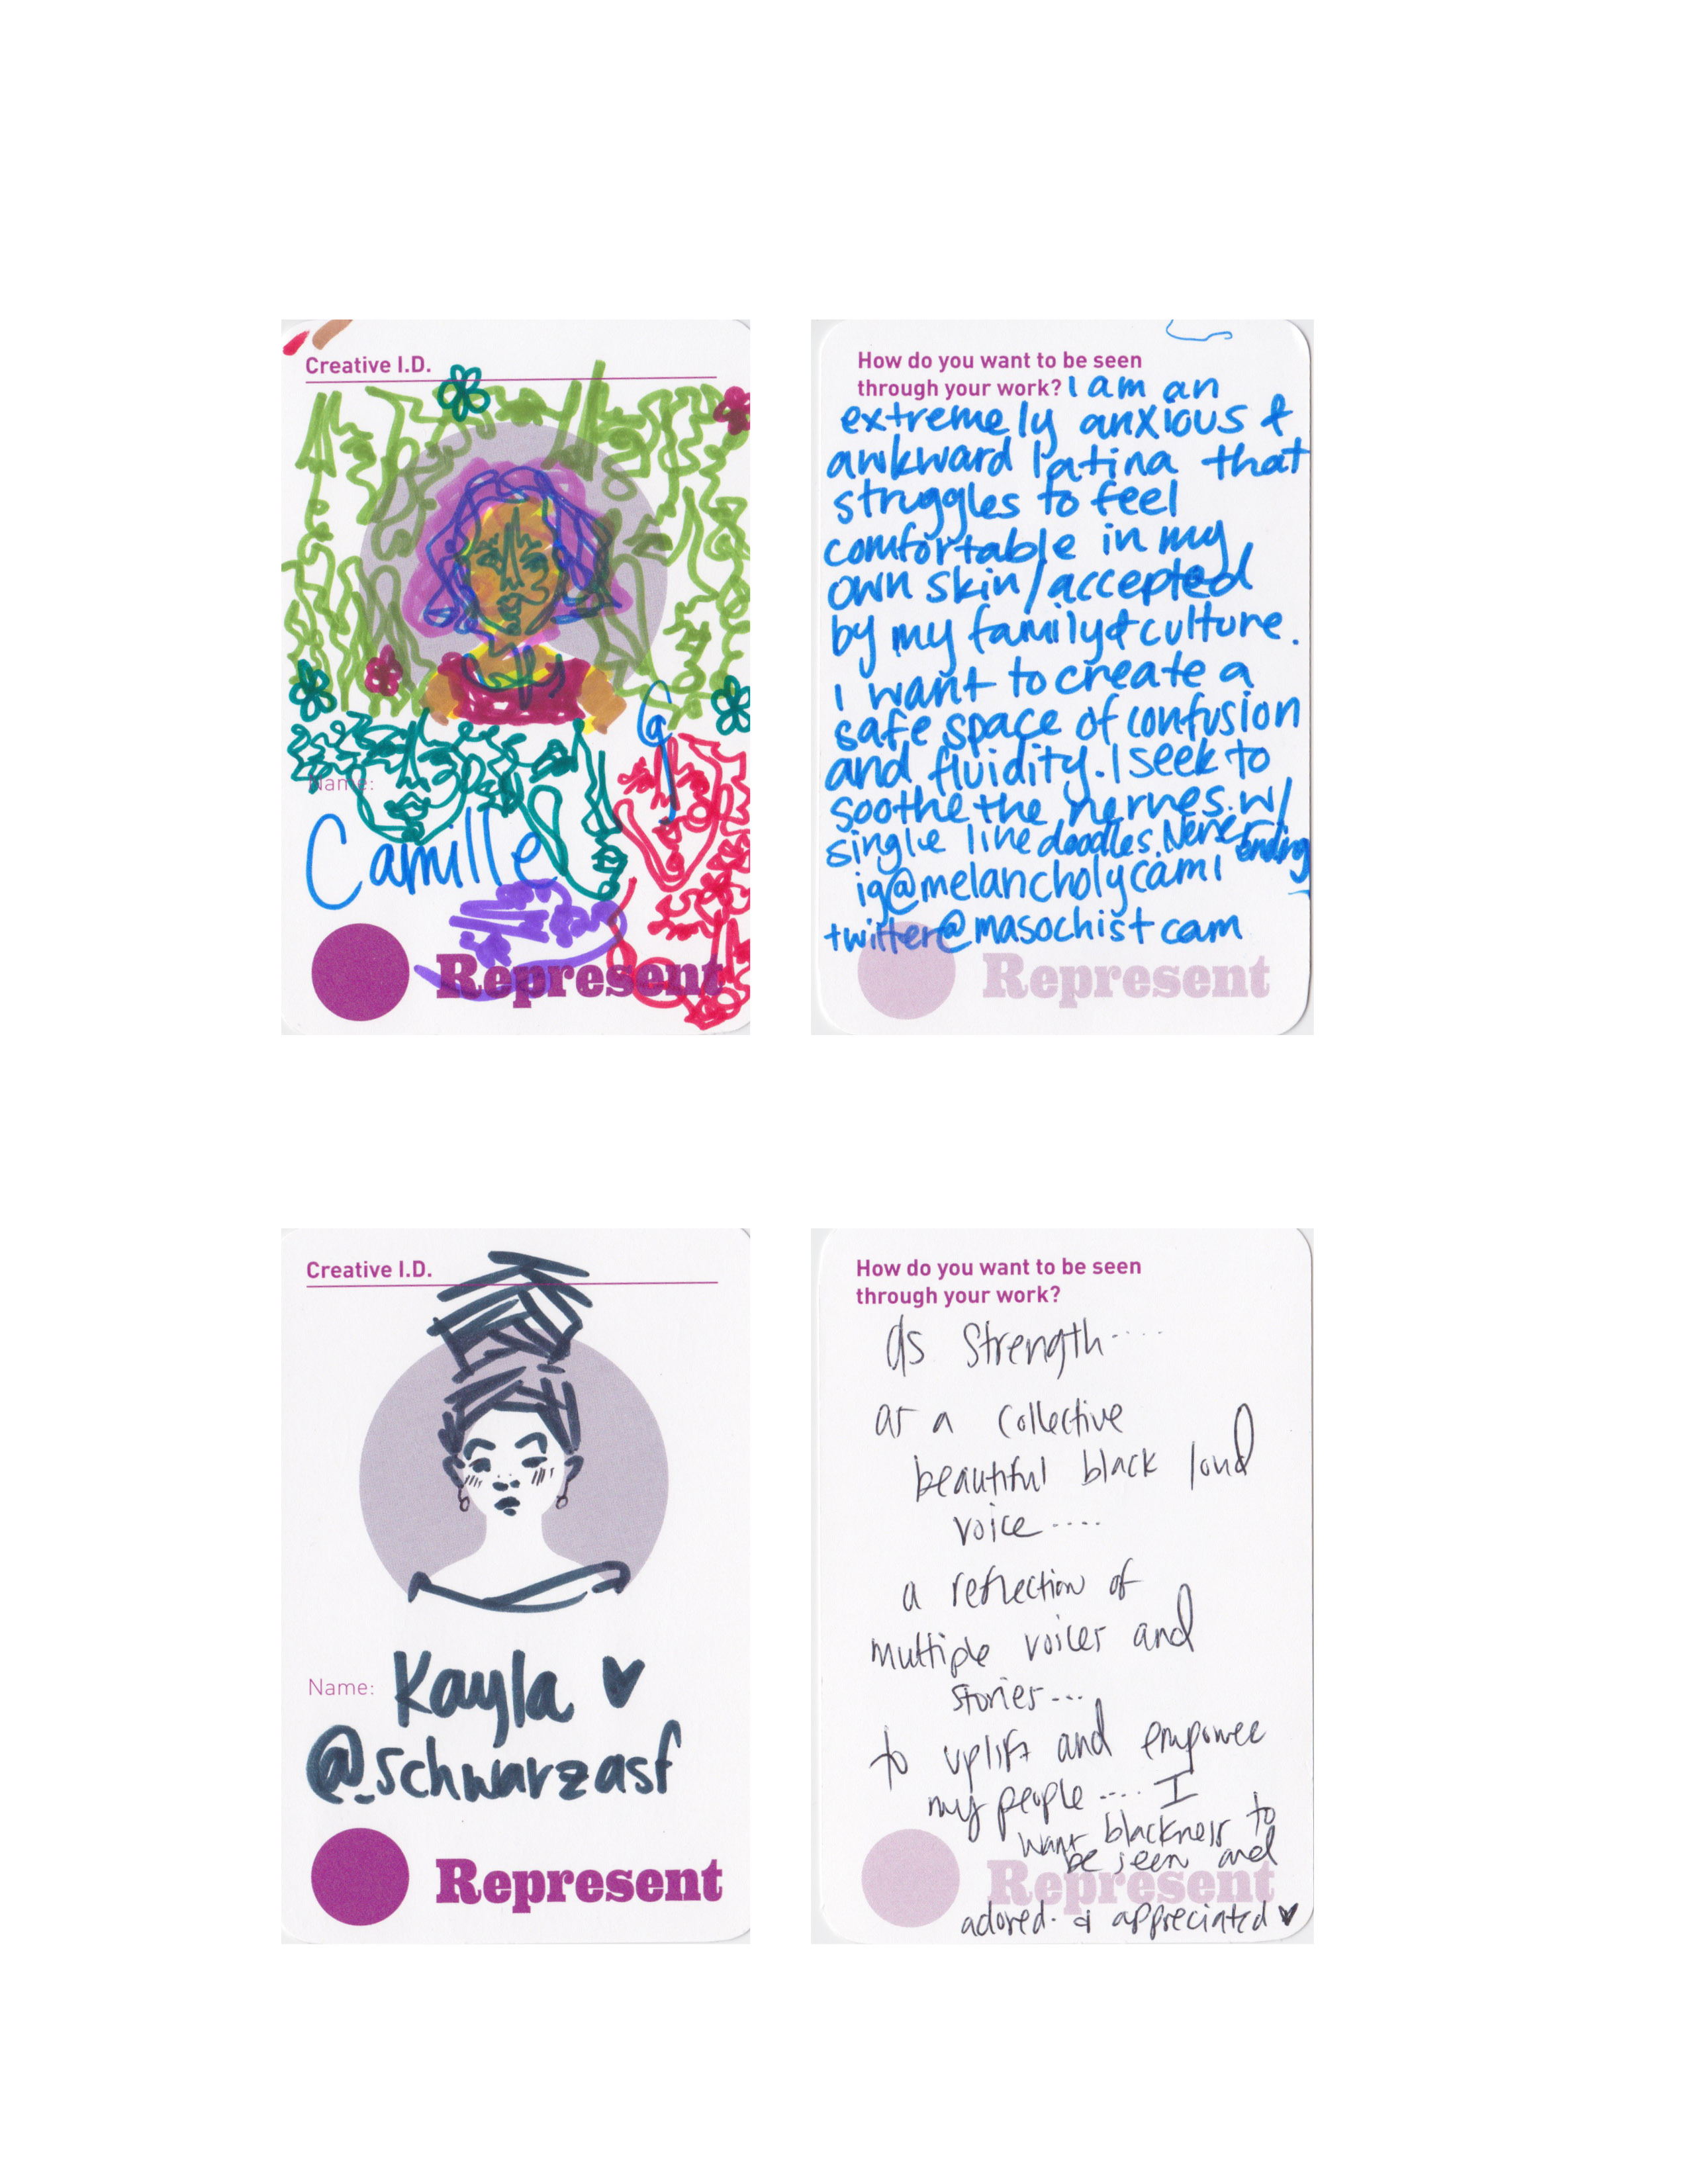 Creative I.D.
Name:
Camille
Represent
How do you want to be seen
through your work? I am an
extremely anxious &
awkward latina that
struggles to feel
comfortable in my
own skin/accepted
by my family & culture.
I want to create a
safe space of confusion
and fluidity. I seek to
soothe the nerves. w/
single line doodles. Never Ending
ig@melancholycami
twitter@masochistcam
Represent
Creative I.D.
Name: Kayla ♥
@_schwarzasf
Represent
How do you want to be seen
through your work?
As Strength....
as a collective
beautiful black loud
voice....
a reflection of
multiple voices and
stories...
to uplift and empower
my people .... I
want blackness to
be seen and
Represent
adored. & appreciated ♥